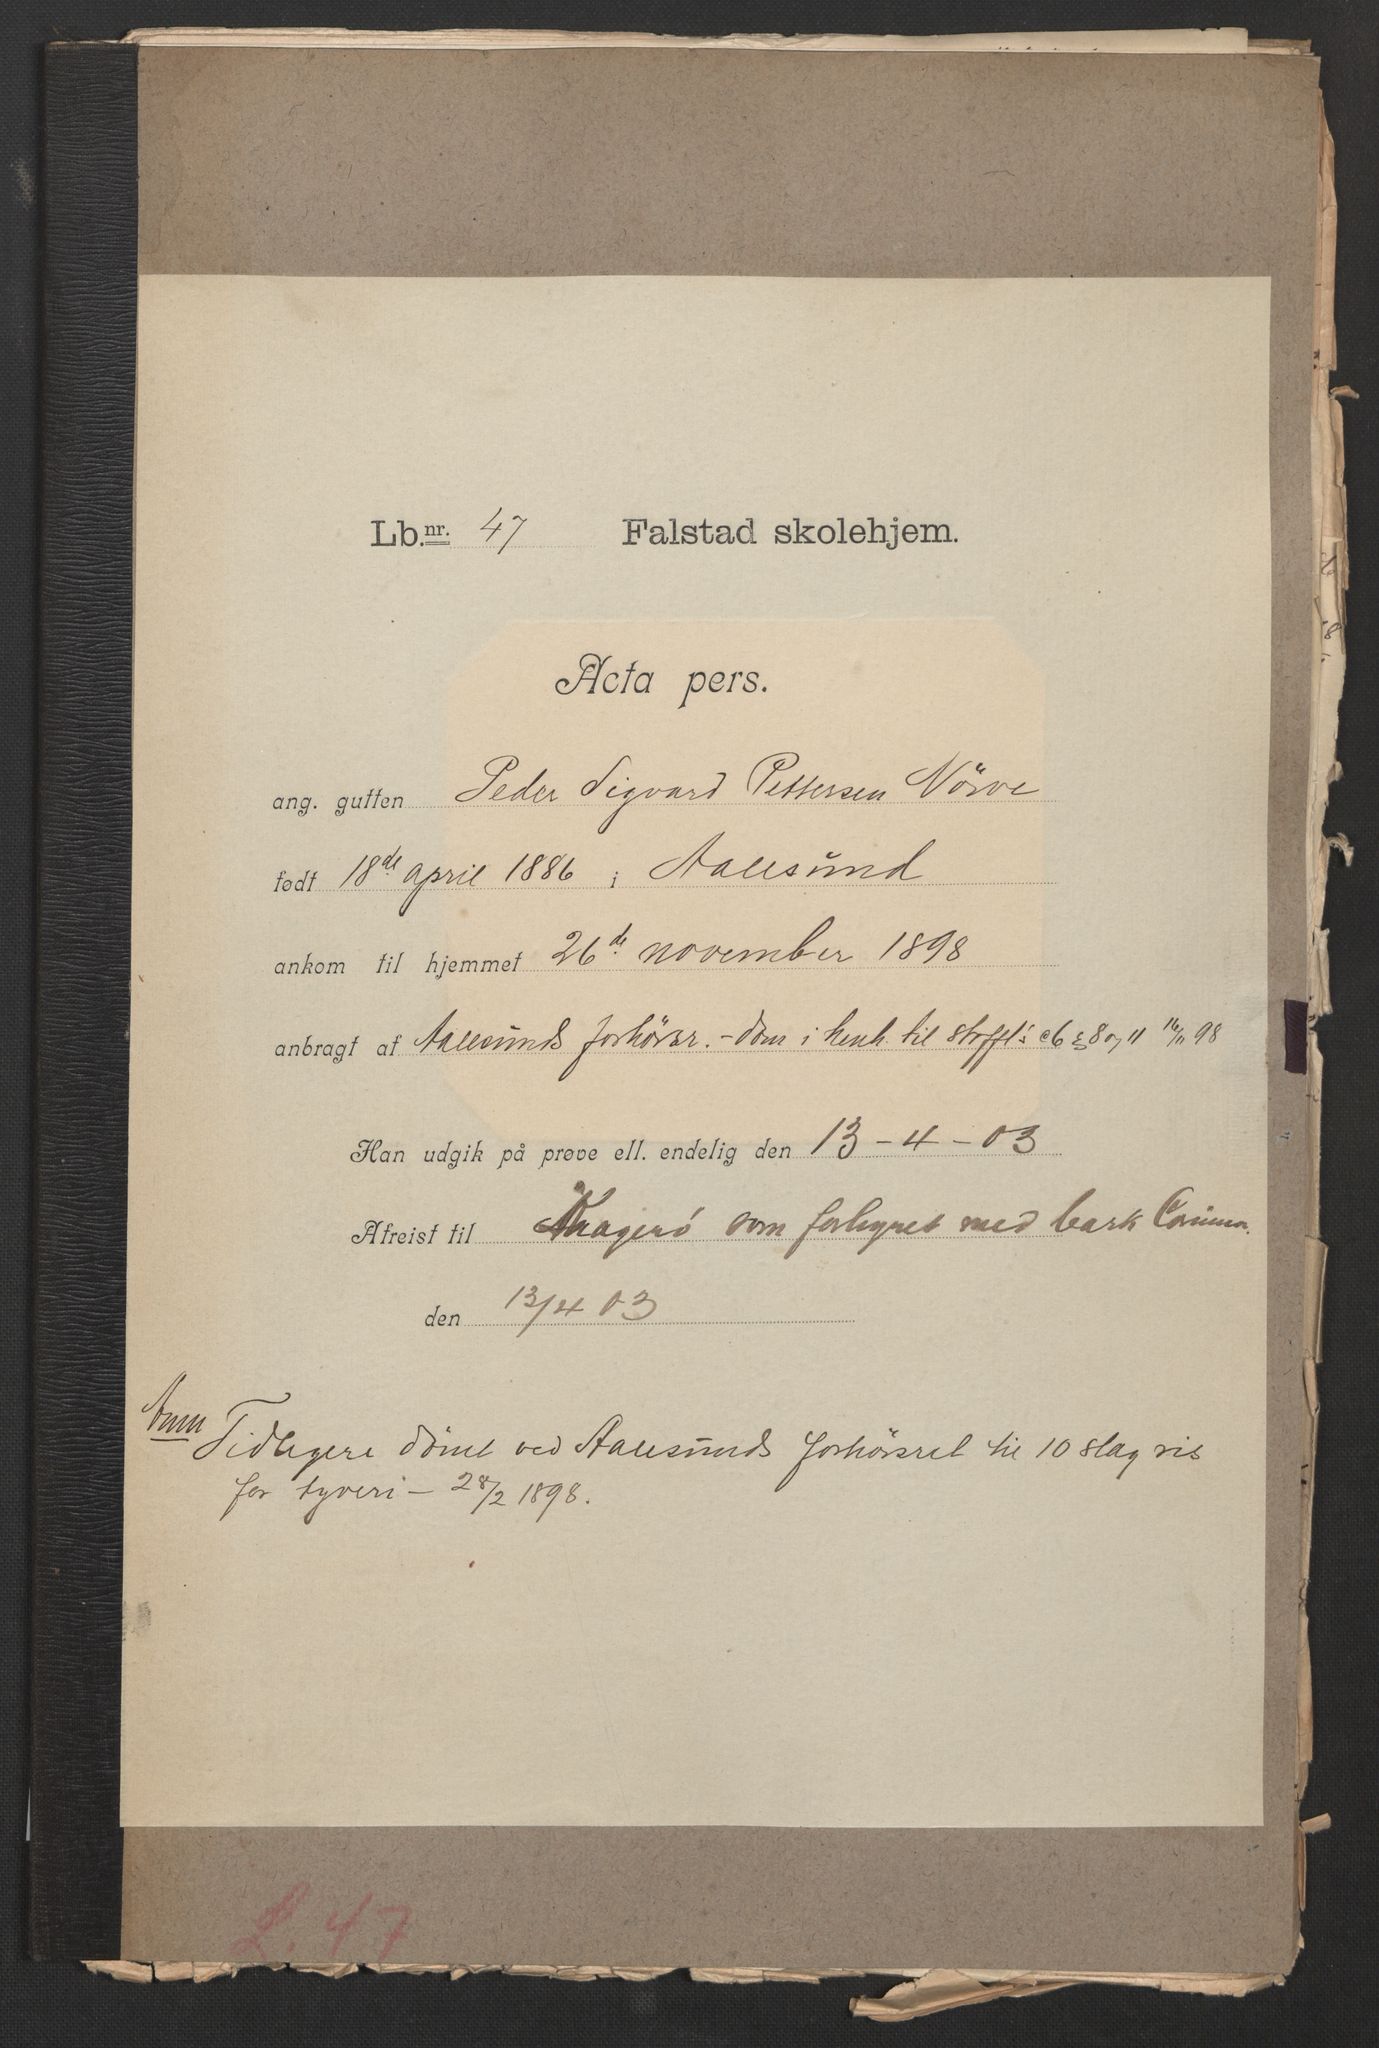 Lb.nr. 47 Falstad skolehjem.
Acta pers.
ang. gutten Peder Sigvard Pettersen Nörve
født 18de april 1886 i Aalesund
ankom til hjemmet 26de november 1898
anbragt af Aalesunds forhörsr. - dom i henh. til strffl's c 6 § 8 og 11 16/11 98
Han udgik på prøve ell. endelig den 13 - 4 - 03
Afreist til Kragerö som forhyret med bark
den 13/4 03
Anm Tidligere dömt ved Aalesunds forhörsret til 10 slag ris
for tyveri - 28/2 1898.
L. 47